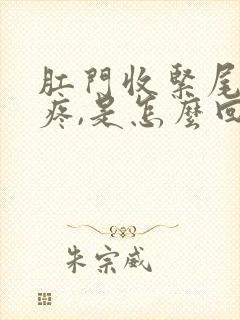 肛門收緊尾
疼,是怎麼回
朱宗威